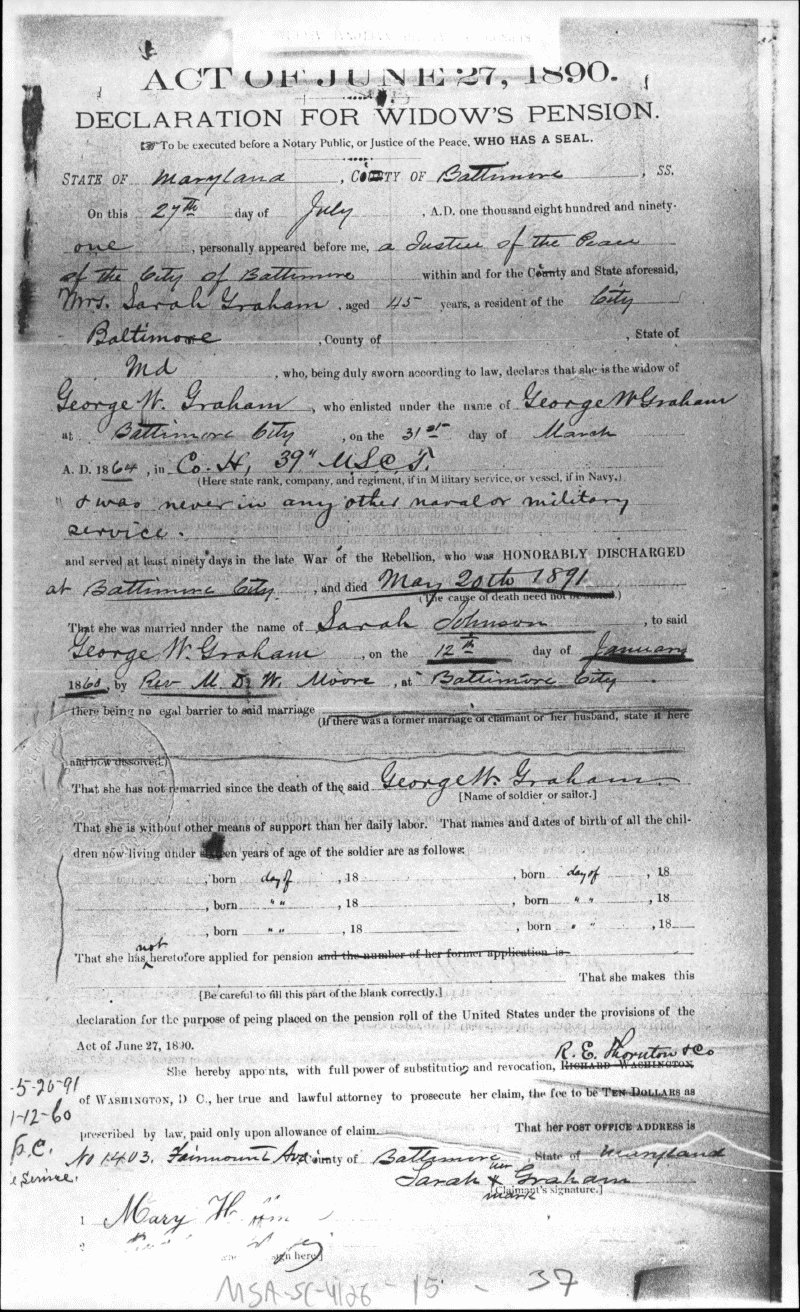 ACT OF JUNE 27, 1890.
DECLARATION FOR WIDOW'S PENSION.
☞ To be executed before a Notary Public, or Justice of the Peace, WHO HAS A SEAL.
STATE OF Maryland, COUNTY OF Baltimore, SS.
On this 27th day of July, A.D. one thousand eight hundred and ninety-
one, personally appeared before me, a Justice of the Peace
of the City of Baltimore within and for the County and State aforesaid,
Mrs. Sarah Graham, aged 45 years, a resident of the City
Baltimore, County of , State of
Md, who, being duly sworn according to law, declares that she is the widow of
George W. Graham, who enlisted under the name of George W Graham
at Baltimore City, on the 31st day of March
A. D. 1864, in Co. H, 39"
(Here state rank, company, and regiment, if in Military service, or vessel, if in Navy.)
& was never in any other naval or military
service.
and served at least ninety days in the late War of the Rebellion, who was HONORABLY DISCHARGED
at Baltimore City, and died May 20th 1891
(The cause of death need not be .)
That she was married nnder the name of Sarah Johnson, to said
George W. Graham, on the 12th day of January
1860, by Rev M. D. W. Moore, at Baltimore City
there being no egal barrier to said marriage
(If there was a former marriage of claimant or her husband, state it here
and how dissolved.)
That she has not remarried since the death of the said George W. Graham.
[Name of soldier or sailor.]
That she is without other means of support than her daily labor. That names and dates of birth of all the chil-
dren now living under years of age of the soldier are as follows:
, born day of , 18 , born day of , 18
, born " " , 18 , born " " , 18
, born " " , 18 , born " " , 18
That she has not heretofore applied for pension and the number of her former application is
That she makes this
[Be careful to fill this part of the blank correctly.]
declaration for the purpose of peing placed on the pension roll of the United States under the provisions of the
Act of June 27, 1890.
R. E. Thornton & Co
She hereby appoints, with full power of substitution and revocation, RICHARD WASHINGTON,
of WASHINGTON, D C., her true and lawful attorney to prosecute her claim, the fee to be TEN DOLLARS as
prescribed by law, paid only upon allowance of claim. That her POST OFFICE ADDRESS is
No 1403. Fairmount Ave County of Baltimore, State of Maryland
Sarah her x mark Graham
[Claimant's signature.]
-5-20-91
1-12-60
Service.
1 Mary H.
2
sign here]
MSA-SC-4126 - 15 - 37